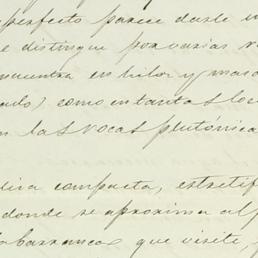 perfecto parece darle u
e distingue por varias v
ncuentra en hilos y mas
ado) como en tantas loc
n las rocas plutónica
compacta, estretif
donde se aproxima al p
barranco que visité,